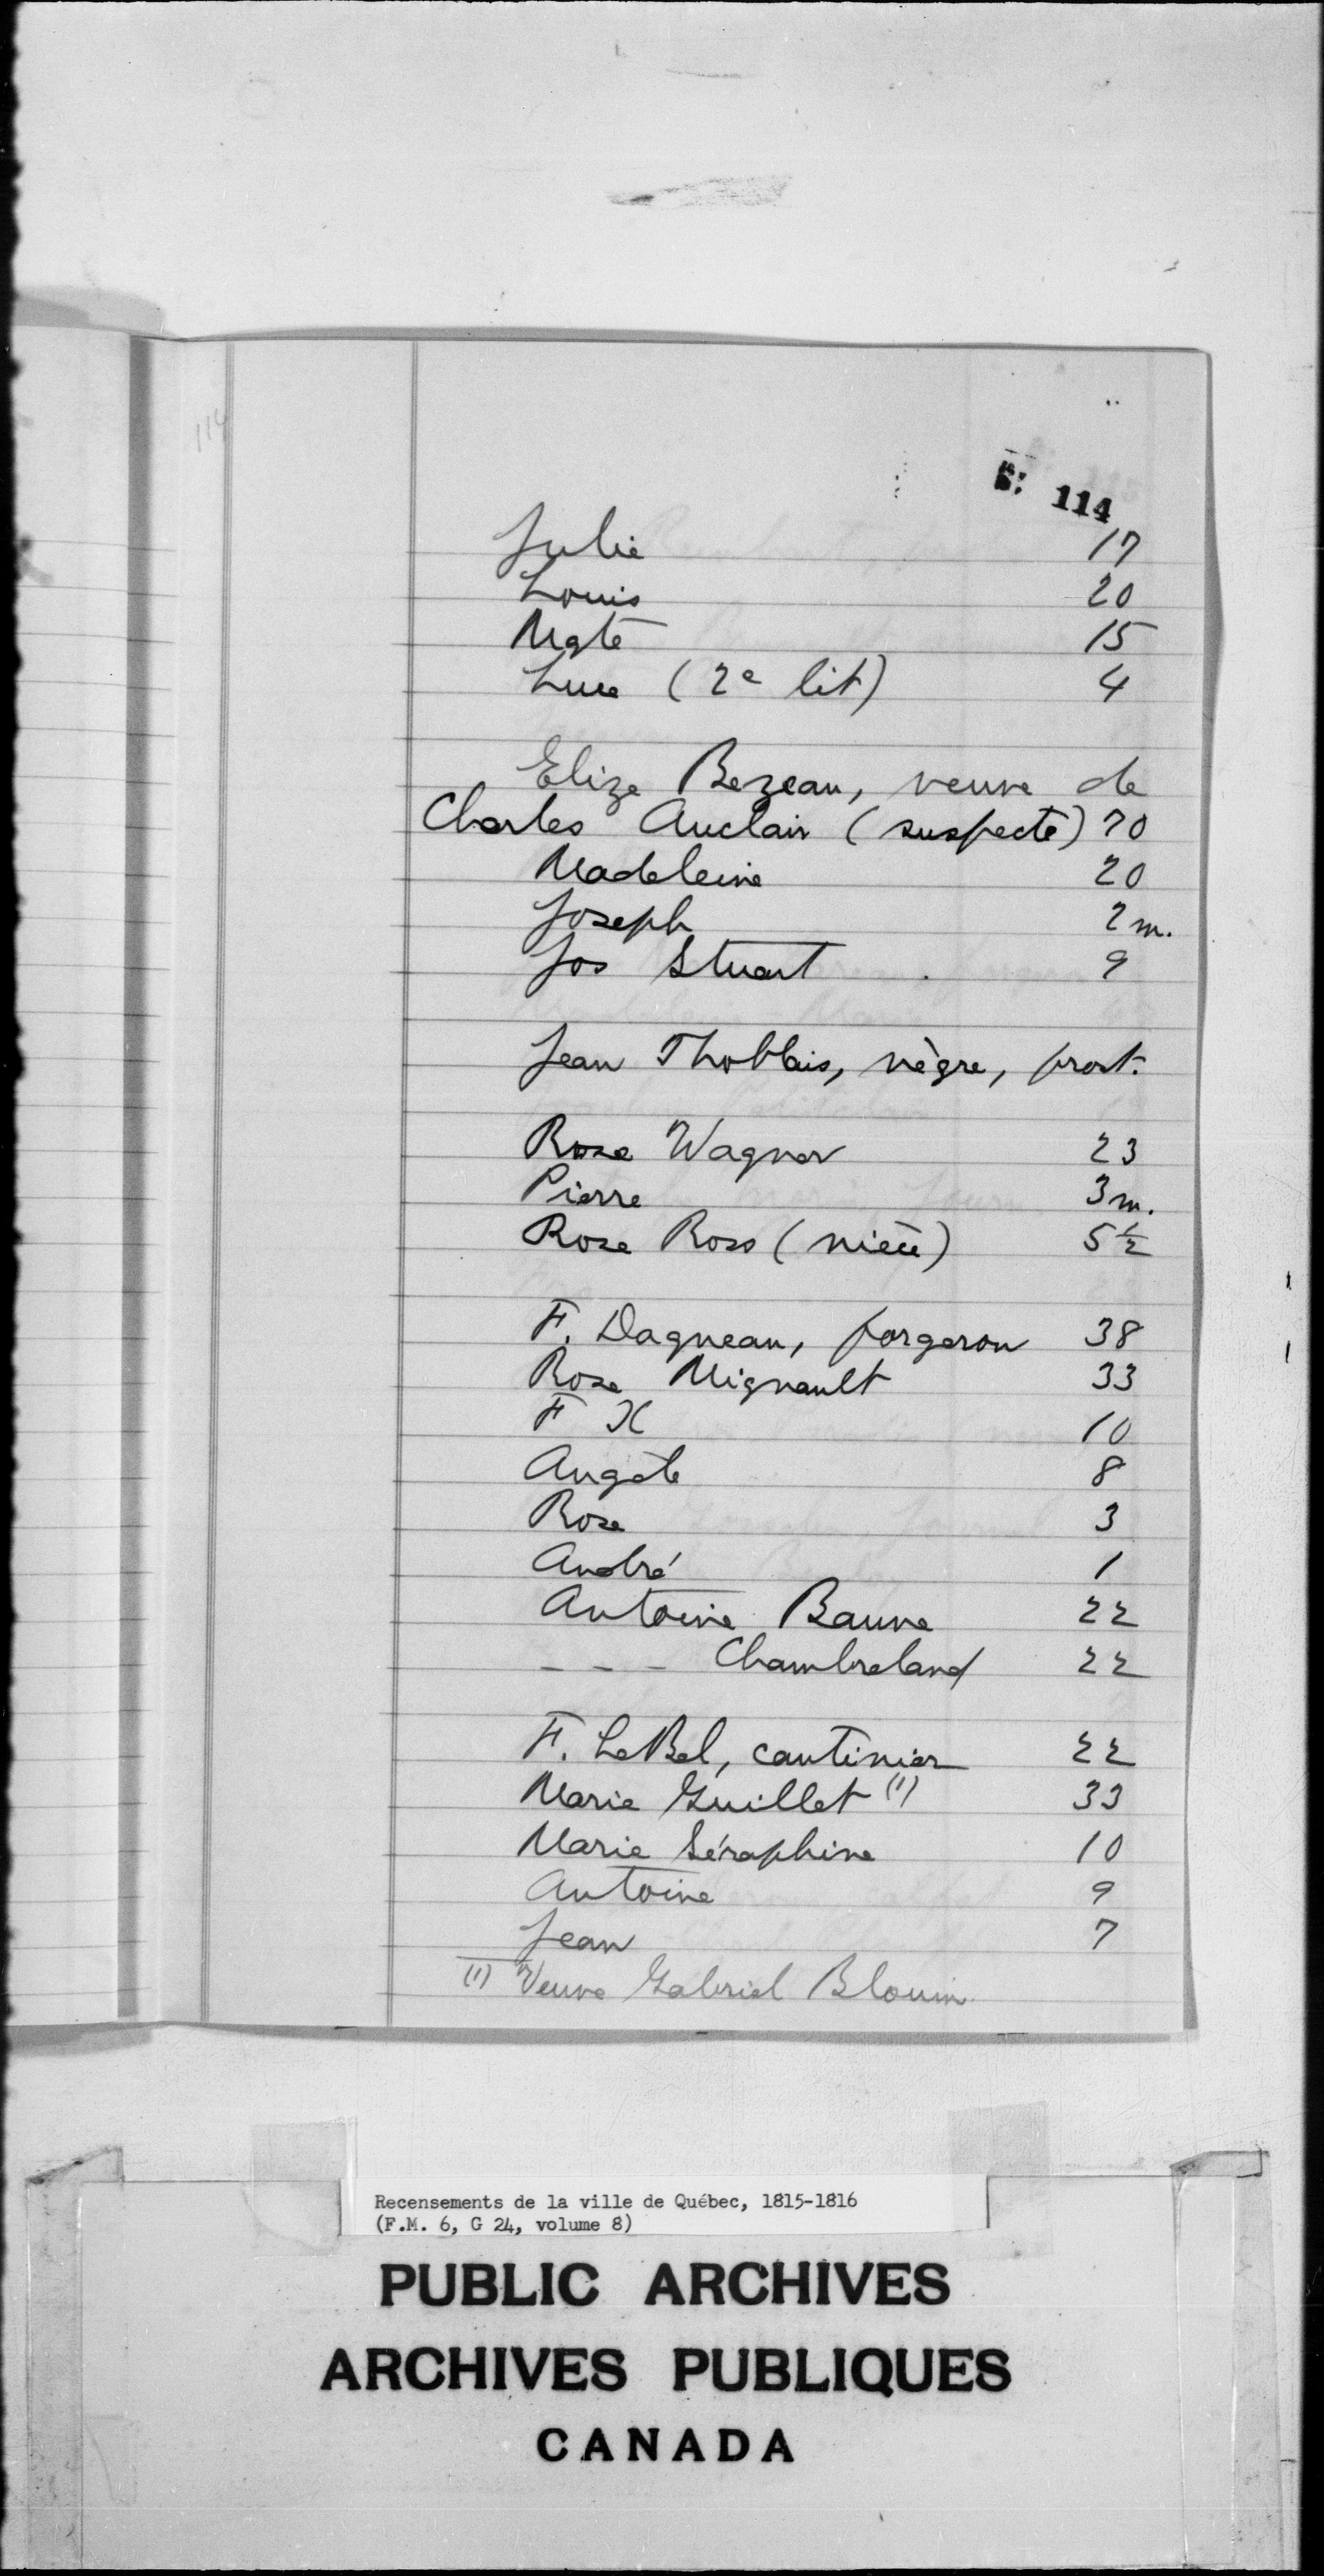 114
114
Julie 17
Louis 20
Mgte 15
Luce (2e lit) 4
Elize Bezeau, veuve de
Charles Auclair (suspecte) 70
Madeleine 20
Joseph 2 m.
Jos Stuart 9
Jean Thoblais, nègre, prot.
Rose Wagner 23
Pierre 3 m.
Rose Ross (nièce) 5 1/2
F. Dagneau, forgeron 38
Rose Mignault 33
F X 10
Angèle 8
Rose 3
André 1
Antoine Baune 22
--- Chambreland 22
F. LeBel, cantinier 22
Marie Guillet (1) 33
Marie Séraphine 10
Antoine 9
Jean 7
(1) Veuve Gabriel Blouin
Recensements de la ville de Québec, 1815-1816
(F.M. 6, G 24, volume 8)
PUBLIC ARCHIVES
ARCHIVES PUBLIQUES
CANADA